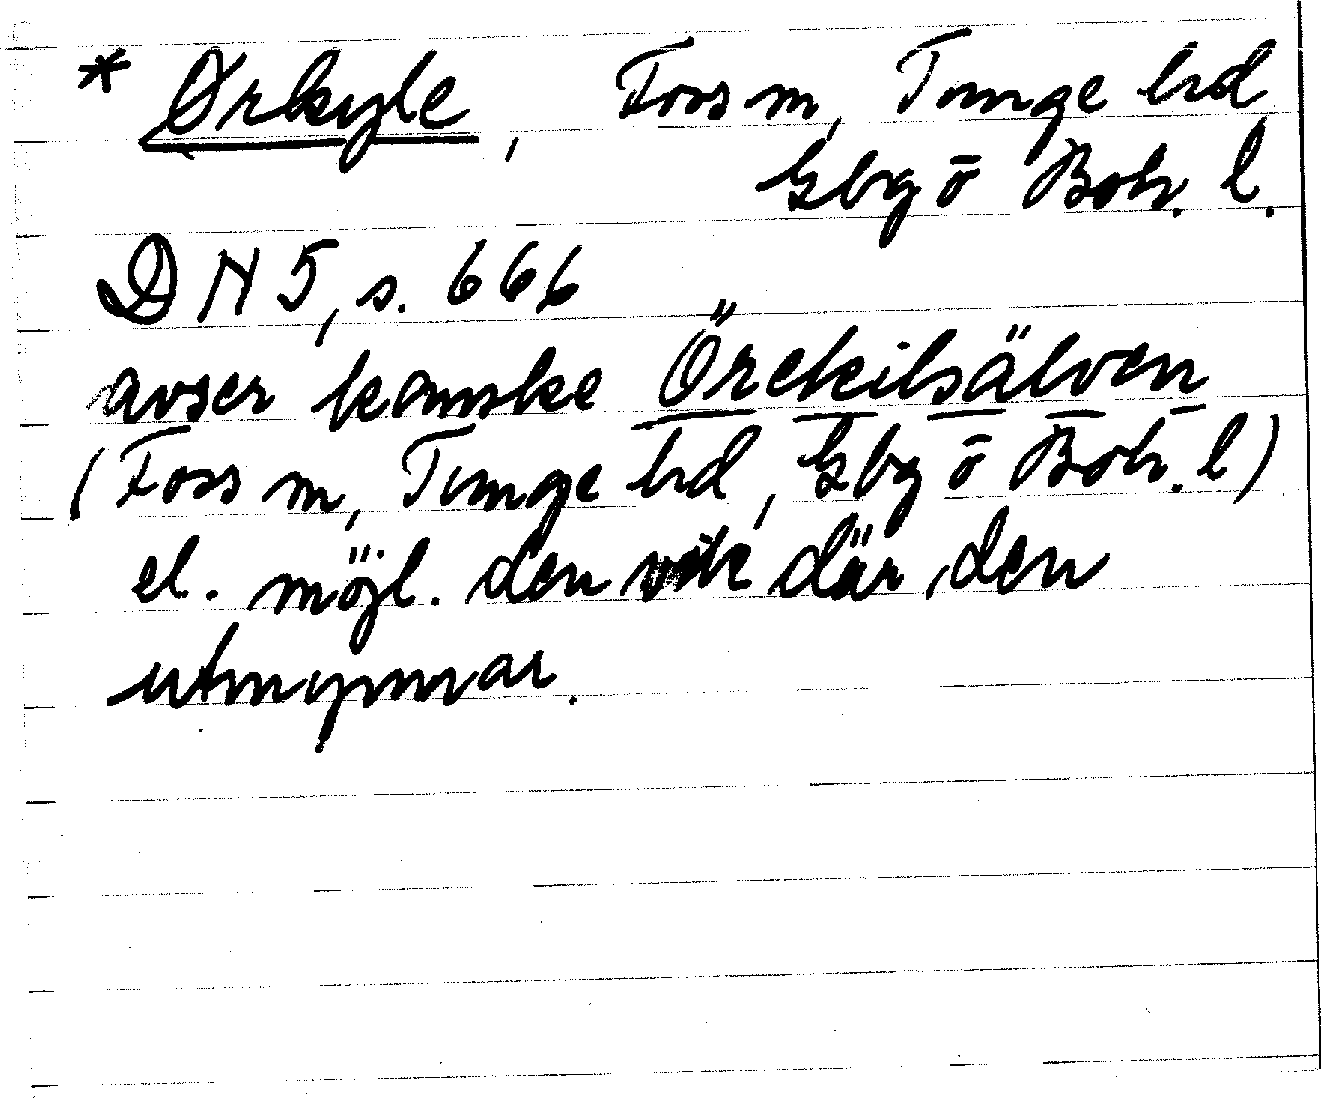 * Ørkyle, Foss sn, Tunge hd
Gbg o Boh. l.
DN 5, s. 666
avser kanske Örekilsälven
(Foss sn, Tunge hd, Gbg o Boh. l)
el. möjl. den vik där den
utmynnar.